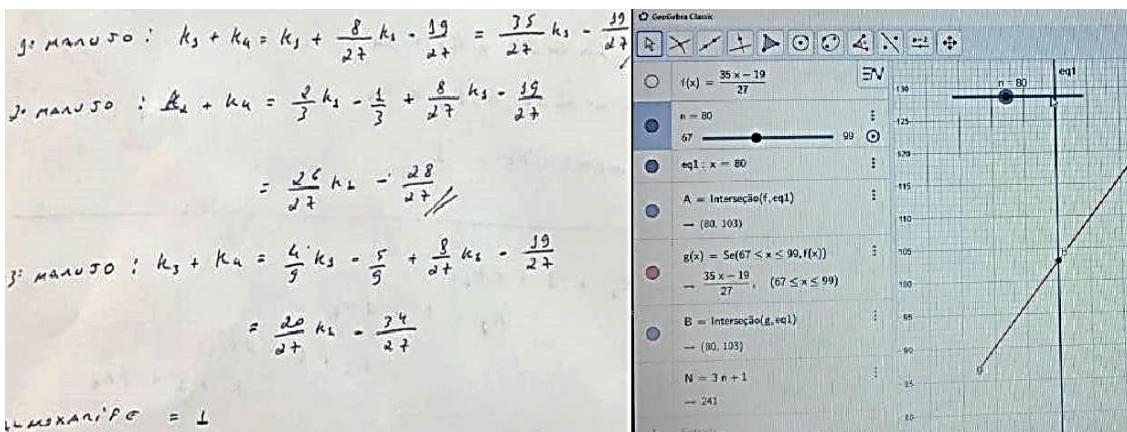 1º MARUJO : k₁ + k₄ = k₁ + 8/27 k₁ - 19/27 = 35/27 k₁ - 19/27 //
2º MARUJO : k₂ + k₄ = 2/3 k₁ - 1/3 + 8/27 k₁ - 19/27
= 26/27 k₁ - 28/27 //
3º MARUJO : k₃ + k₄ = 4/9 k₁ - 5/9 + 8/27 k₁ - 19/27
= 20/27 k₁ - 34/27
ALMOXARIFE = 1
GeoGebra Classic
f(x) = (35 x − 19)/27
n = 80
67 99
eq1 : x = 80
A = Interseção(f, eq1)
→ (80, 103)
g(x) = Se(67 ≤ x ≤ 99, f(x))
→ (35 x − 19)/27, (67 ≤ x ≤ 99)
B = Interseção(g, eq1)
→ (80, 103)
N = 3 n + 1
→ 241
n = 80
eq1
130
125
120
115
110
105
100
95
90
85
80